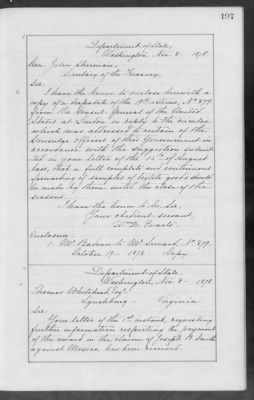 197
Department of State,
Washington, Nov. 8 - 1878.
Hon. John Sherman,
Secretary of the Treasury.
Sir:
I have the honor to enclose herewith a
copy of a despatch of the 19th ultimo, No. 879
from the Consul General of the United
States at London in reply to the circular
which was addressed to certain of the
Consular officers of this Government in
accordance with the suggestion submit-
ted in your letter of the 15th of August
last, that a full complete and continuous
forwarding of samples of textile goods should
be made by them until the close of the
season.
I have the honor to be, Sir,
Your obedient servant,
Wm. M. Evarts
Enclosure:
1. Mr. Badeau to Mr. Seward, No. 879.
October 19 - 1878. Copy
Department of State,
Washington, Nov. 8 - 1878.
Thomas Whitehead Esq.
Lynchburg - Virginia
Sir:
Your letter of the 1st instant, requesting
further information respecting the payment
of the award in the claim of Joseph H. Smith
against Mexico, has been received.